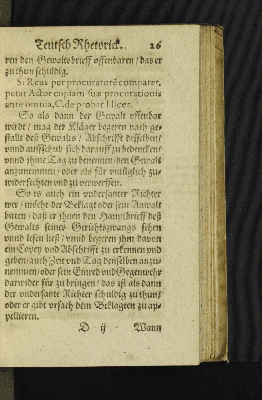 Teutsch Rhetorick. 26
ren den Gewaltsbrieff offenbaren / das er
zu thun schuldig.
Si Reus per procuratorẽ comparet,
petat Actor copiam suæ procurationis
ante omnia, C. de probat. l. licet.
So als dann der Gewalt offenbar
wirdt / mag der Kläger begeren nach ge-
stallt deß Gewalts / Abschrifft desselben /
vnnd auffschub sich darauff zu bedencken /
vnnd jhme Tag zu benennen / den Gewalt
anzunemmen / oder als für vntüglich zu-
widerfechten vnd zu verwerffen.
So es auch ein vndersatzter Richter
wer / möcht der Beklagt oder sein Anwalt
bitten / daß er jhnen den Hauptbrieff deß
Gewalts seines Gerichtszwangs sehen
vnnd lesen ließ / vnnd begeren jhm davon
ein Copey vnd Abschrifft zu erkennen vnd
geben / auch Zeit vnd Tag denselben anzu-
nemmen / oder sein Einred vnd Gegenwehr
darwider für zu bringen / das ist als dann
der vndersatzte Richter schuldig zu thun /
oder er gibt vrsach dem Beklagten zu ap-
pellieren.
D ij Wann